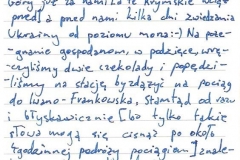 Góry już za nami. Za te Krymskie więc
przed nami kilka dni zwiedzania
Ukrainy od poziomu morza :-) Na poże-
gnanie gospodarzom, w podzięce, wrę-
czyliśmy dwie czekolady i popędzi-
liśmy na stację by zdążyć na pociąg
do Iwano-Frankowska. Stamtąd od razu
i błyskawicznie [bo tylko takie
słowa mogą się cisnąć po około
1godzinnej podróży pociągiem] znale-